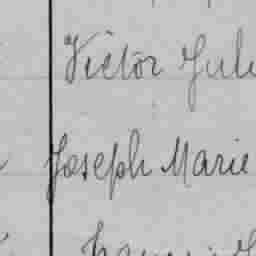 Victor Jule
Joseph Marie